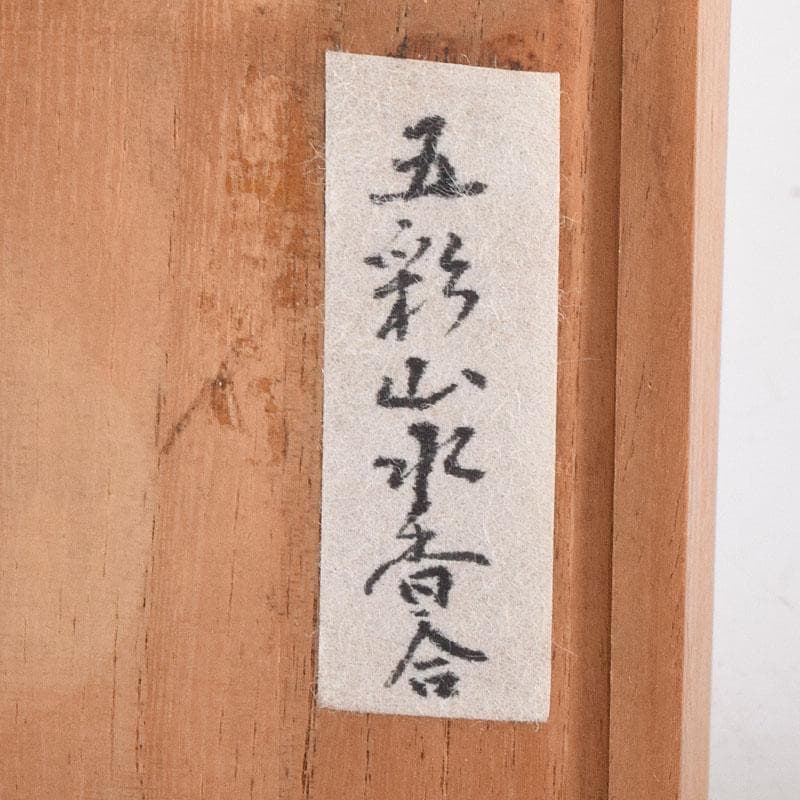 五彩山水香合